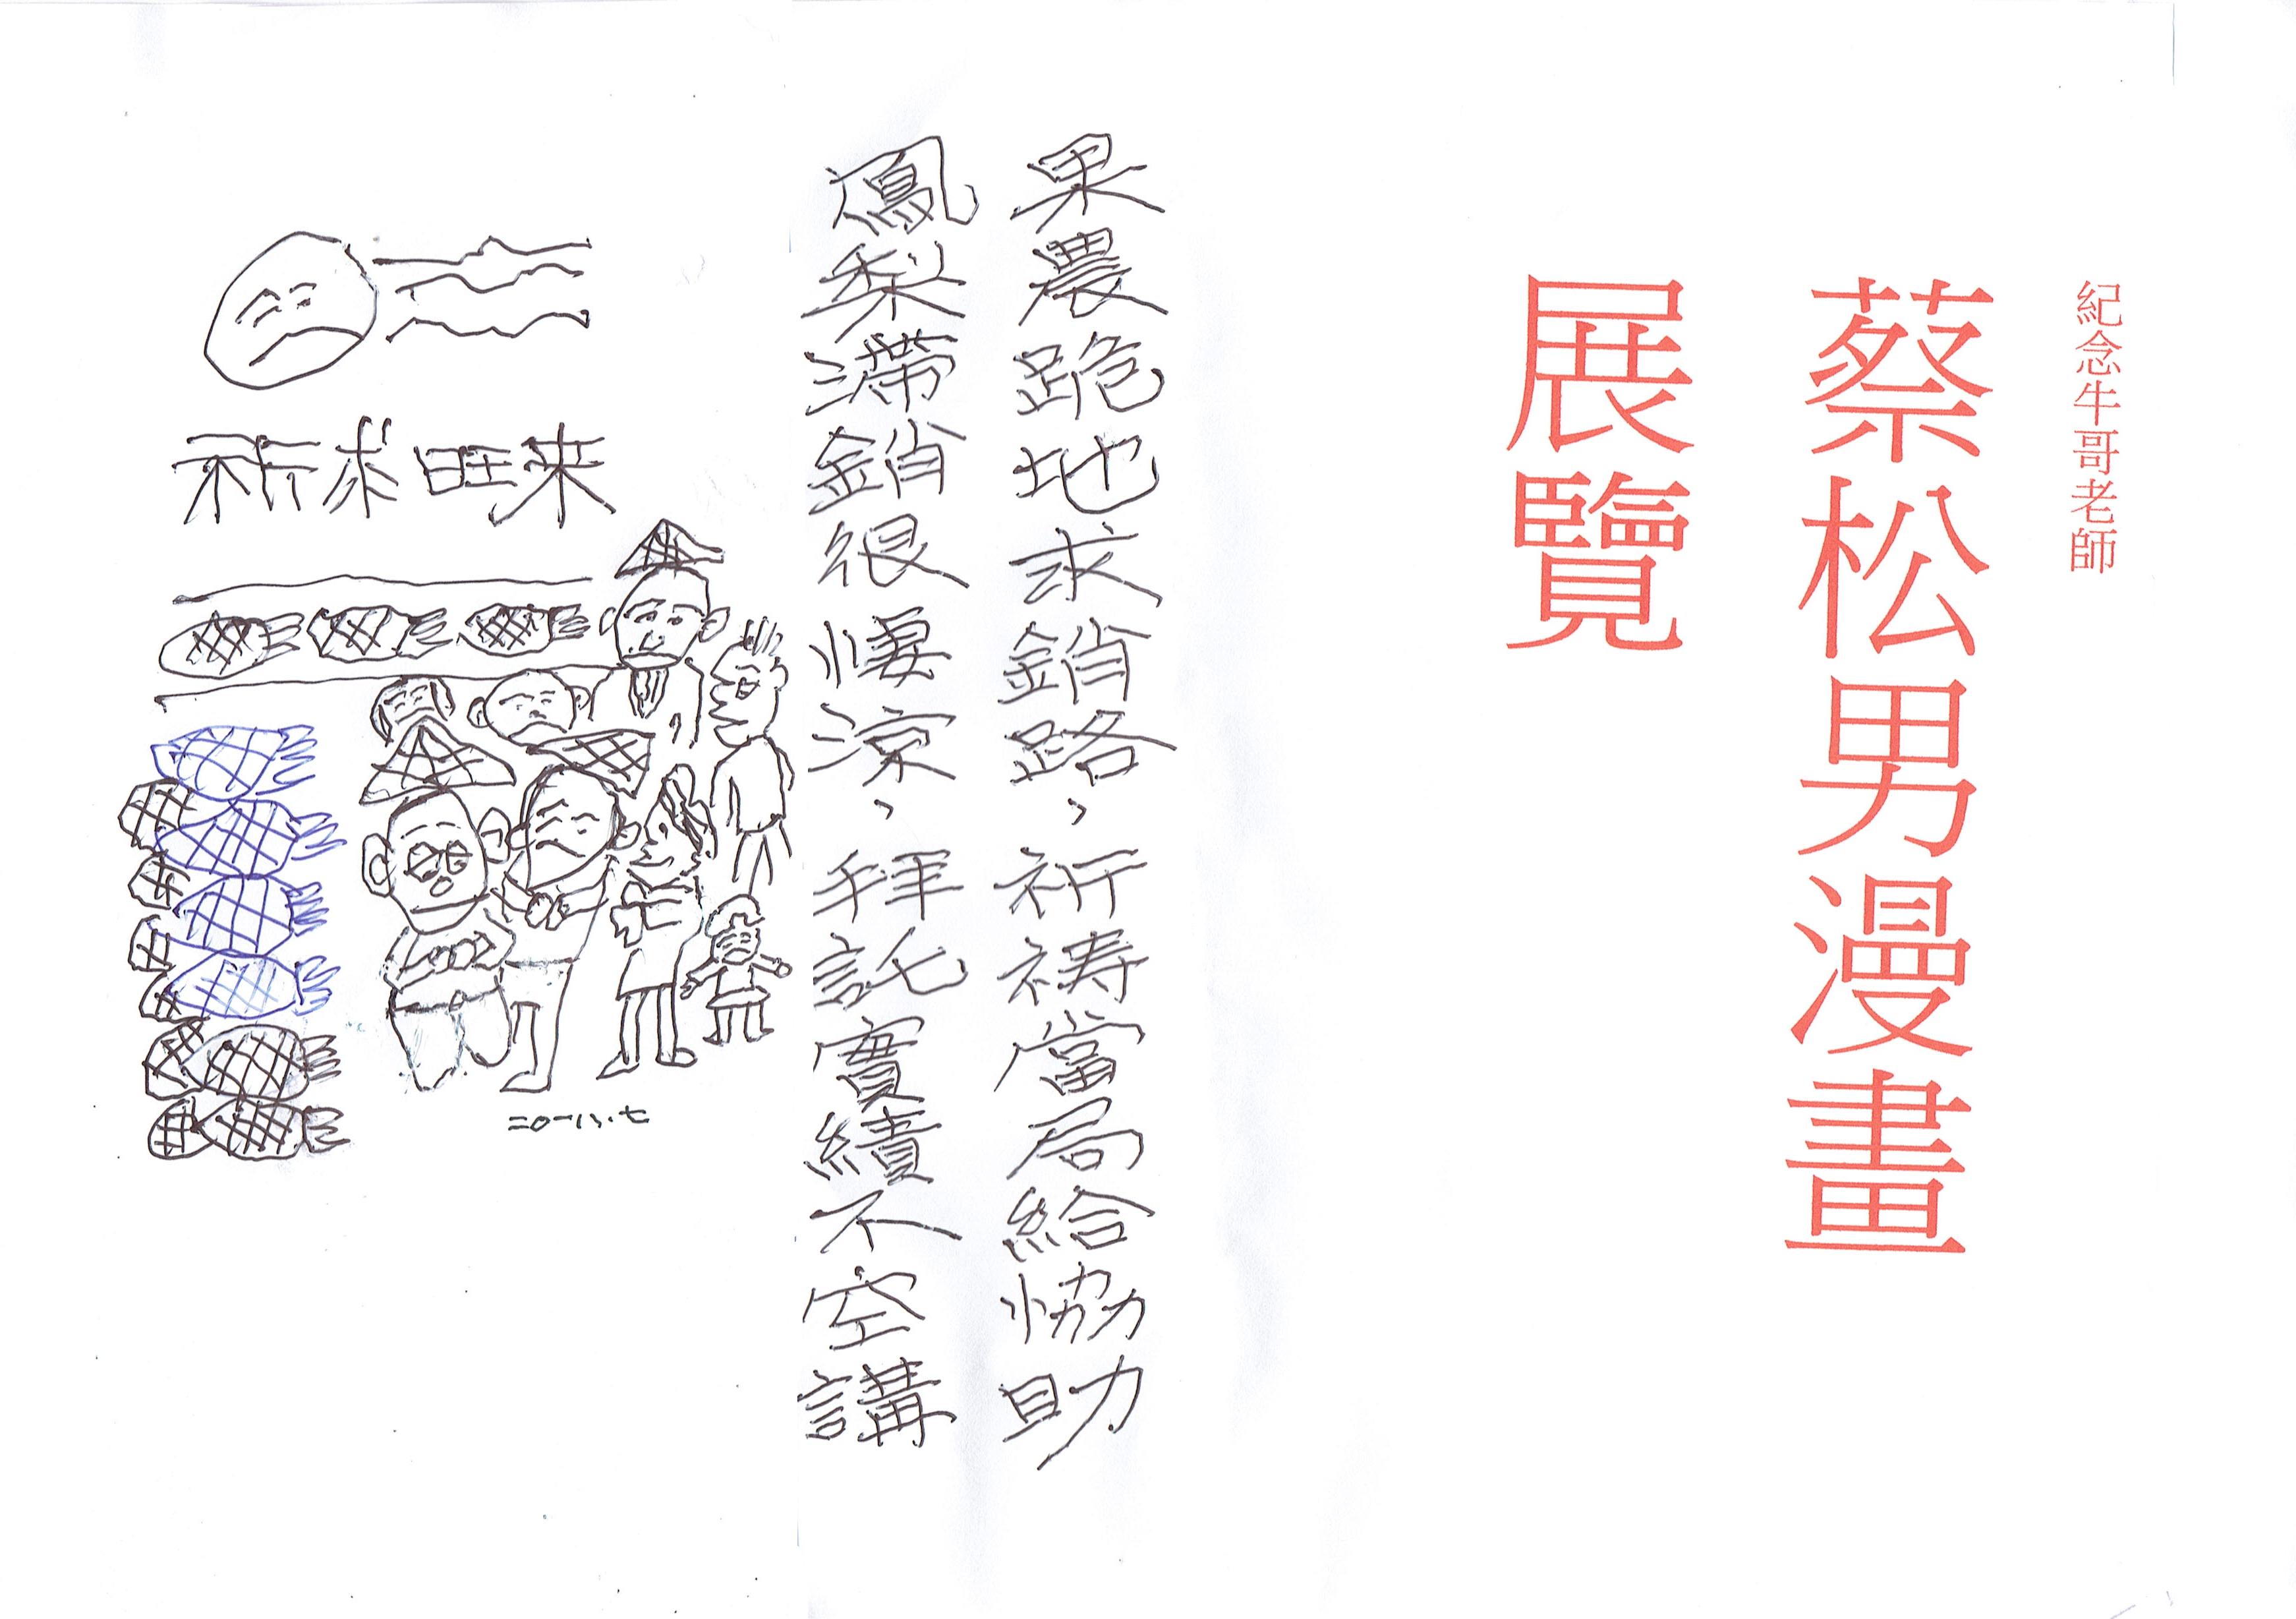 紀念牛哥老師
蔡松男漫畫
展覽
果農跪地求銷路，祈禱當局給協助
鳳梨滯銷很悽涼，拜託實績不空講
祈求旺来
二〇一八.七